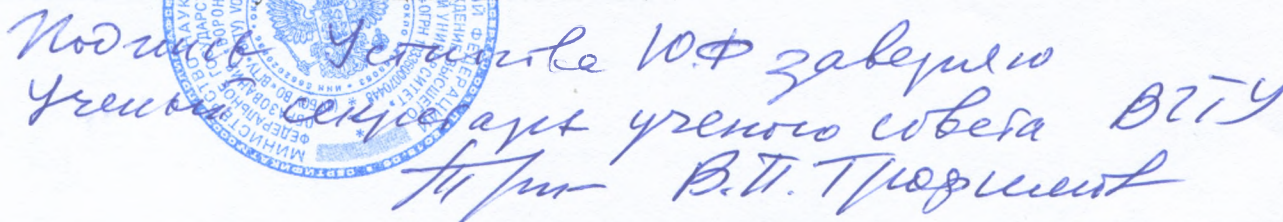 Подпись Устинова Ю.Ф заверяю
Ученый секретарь ученого совета ВГТУ
В.П. Трофимов